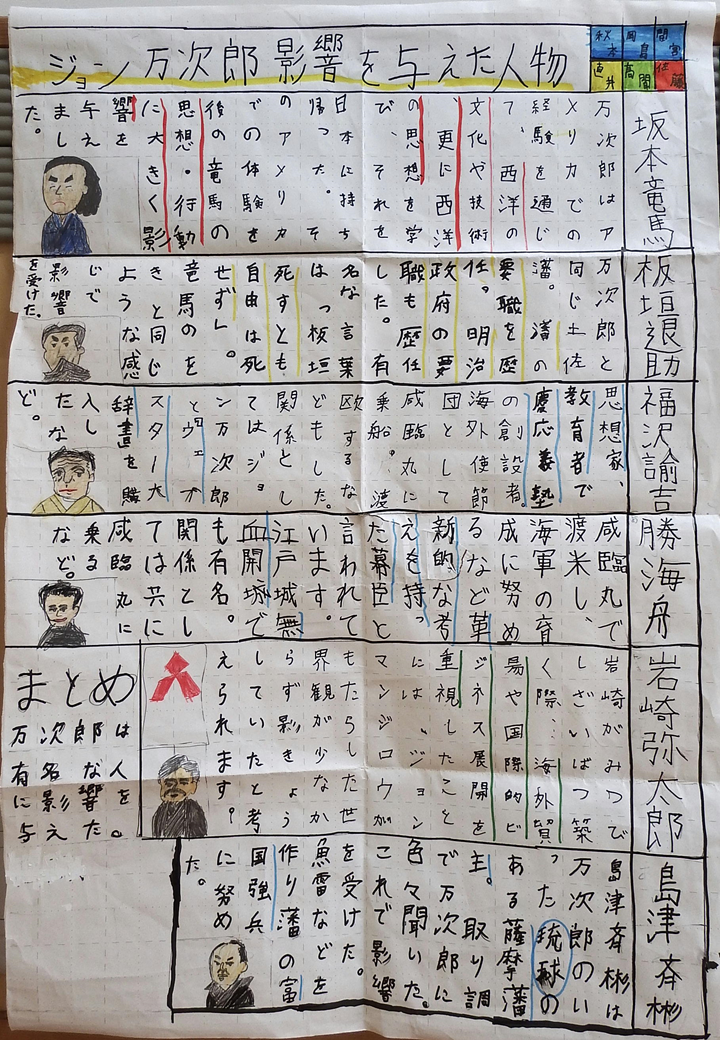 ジョン万次郎影響を与えた人物
間宮
岡島
秋本
佐藤
高間
直井
坂本竜馬
万次郎はア
メリカでの
経験を通じ
て、西洋の
文化や技術
、更に西洋
の思想を学
び、それを
日本に持ち
帰った。そ
のアメリカ
での体験を
後の竜馬の
思想・行動
に大きく影
響を
与え
まし
た。
板垣退助
万次郎と
同じ土佐
藩。藩の
要職を歴
任。明治
政府の要
職も歴任
した。有
名な言葉
は「板垣
死すとも
自由は死
せず」。
竜馬のを
きと同じ
ような感
じで
影響
を受けた。
福沢諭吉
思想家、
教育者で
慶応義塾
の創設者。
海外使節
団として
咸臨丸に
乗船。渡
欧するな
どもした。
関係とし
てはジョ
ン万次郎
とウェブ
スター大
辞書を購
入し
たな
ど。
勝海舟
咸臨丸で
渡米し、
海軍の育
成に努め
るなど革
新的な考
えを持っ
た幕臣と
言われて
います。
江戸城無
血開城で
も有名。
関係とし
ては共に
咸臨丸に
乗る
など。
岩崎弥太郎
岩崎がみつび
しざいばつ築
く際…海外貿
易や国際的ビ
ジネス展開を
重視したこと
には、ジョン
マンジロウが
もたらした世
界観が少なか
らず影きょう
していたと考
えられます?
島津斉彬
島津斉彬は
万次郎のい
った琉球の
ある薩摩藩
主。取り調
べで万次郎に
色々聞いた。
これで影響
を受けた。
魚雷などを
作り藩の富
国強兵
に努め
た。
まとめ
万次郎は
有名な人
に影響を
与えた。